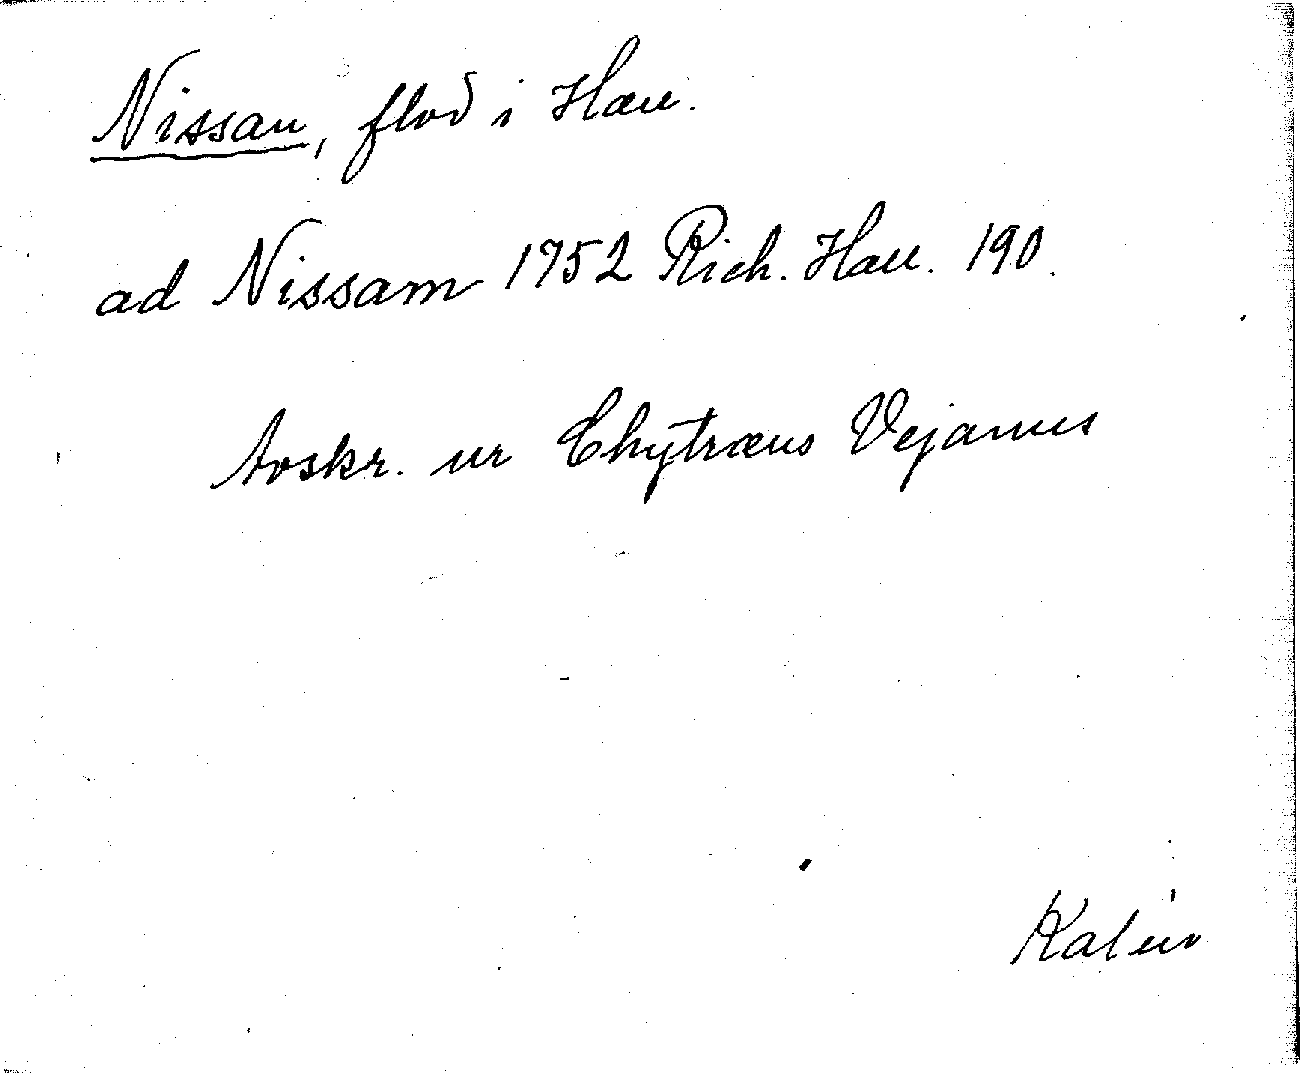 Nissan, flod i Hall.
ad Nissam 1752 Rich. Hall. 190.
Avskr. ur Chytræus Vejamus
Kalén